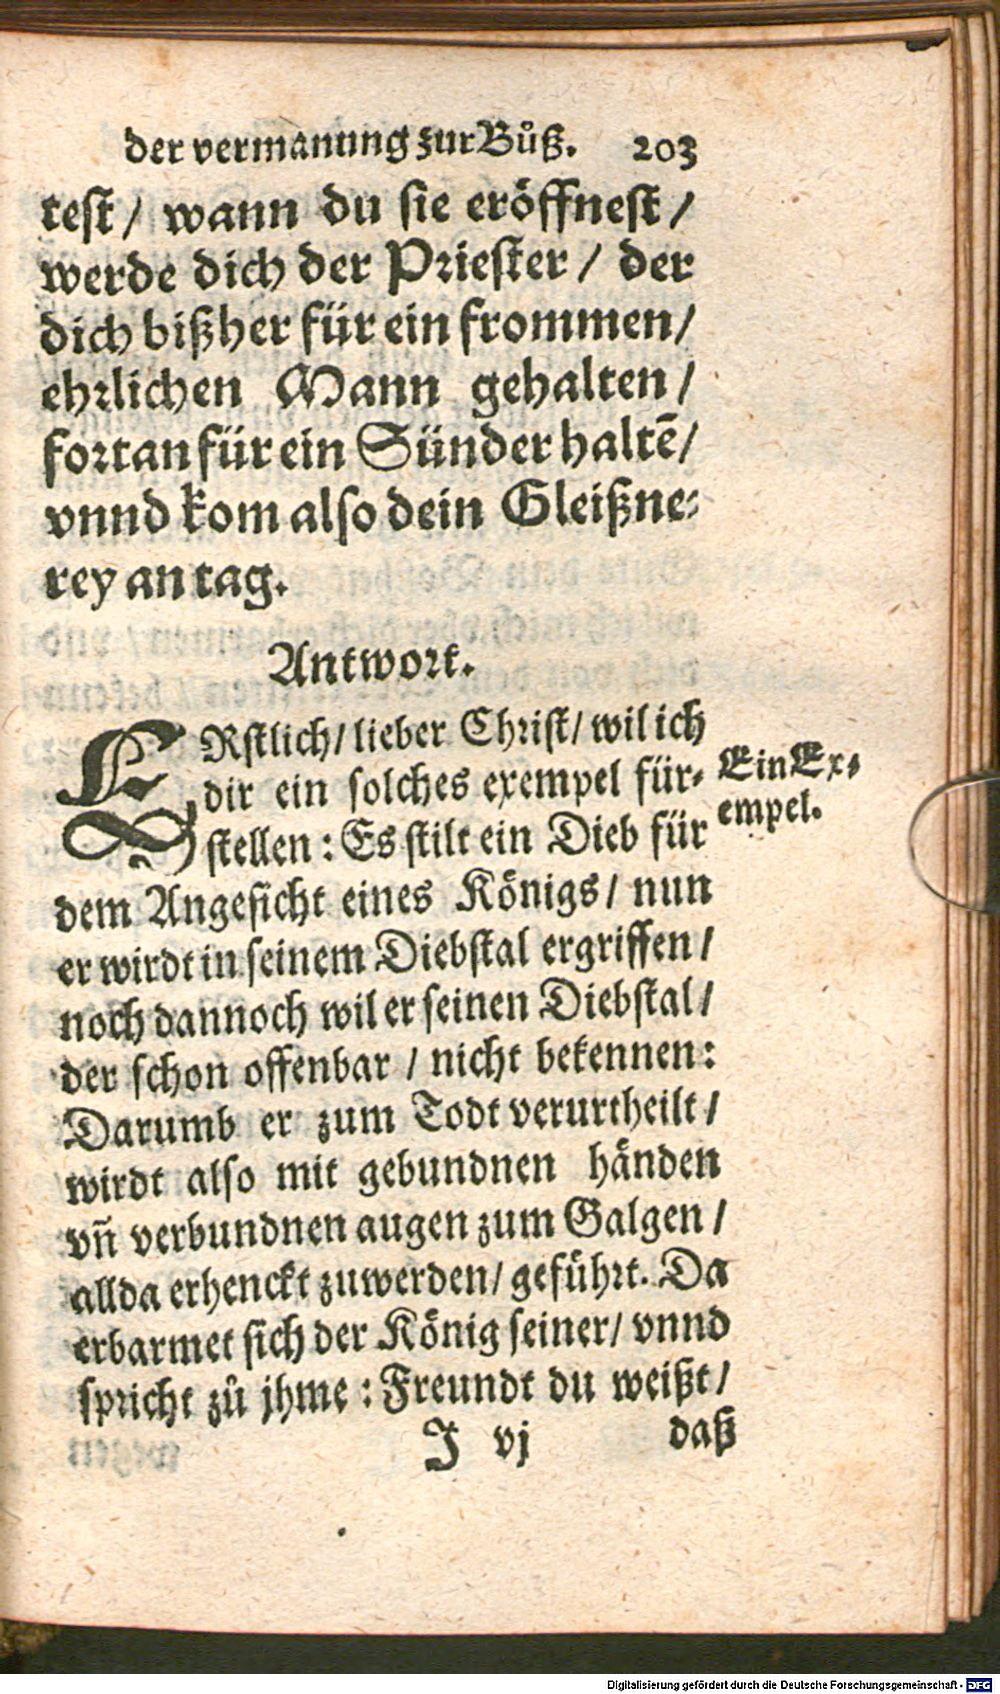 der vermanung zur Bůß. 203
test / wann du sie eröffnest /
werde dich der Priester / der
dich bißher für ein frommen /
ehrlichen Mann gehalten /
fortan für ein Sünder haltē /
vnnd kom also dein Gleißne-
rey an tag.
Antwort.
ERstlich / lieber Christ / wil ich
dir ein solches exempel für-
stellen : Es stilt ein Dieb für
Ein Ex-
empel.
dem Angesicht eines Königs / nun
er wirdt in seinem Diebstal ergriffen /
noch dannoch wil er seinen Diebstal /
der schon offenbar / nicht bekennen :
Darumb er zum Todt verurtheilt /
wirdt also mit gebundnen händen
vñ verbundnen augen zum Galgen /
allda erhenckt zuwerden / geführt. Da
erbarmet sich der König seiner / vnnd
spricht zů jhme : Freundt du weißt /
J vj daß
Digitalisierung gefördert durch die Deutsche Forschungsgemeinschaft - DFG